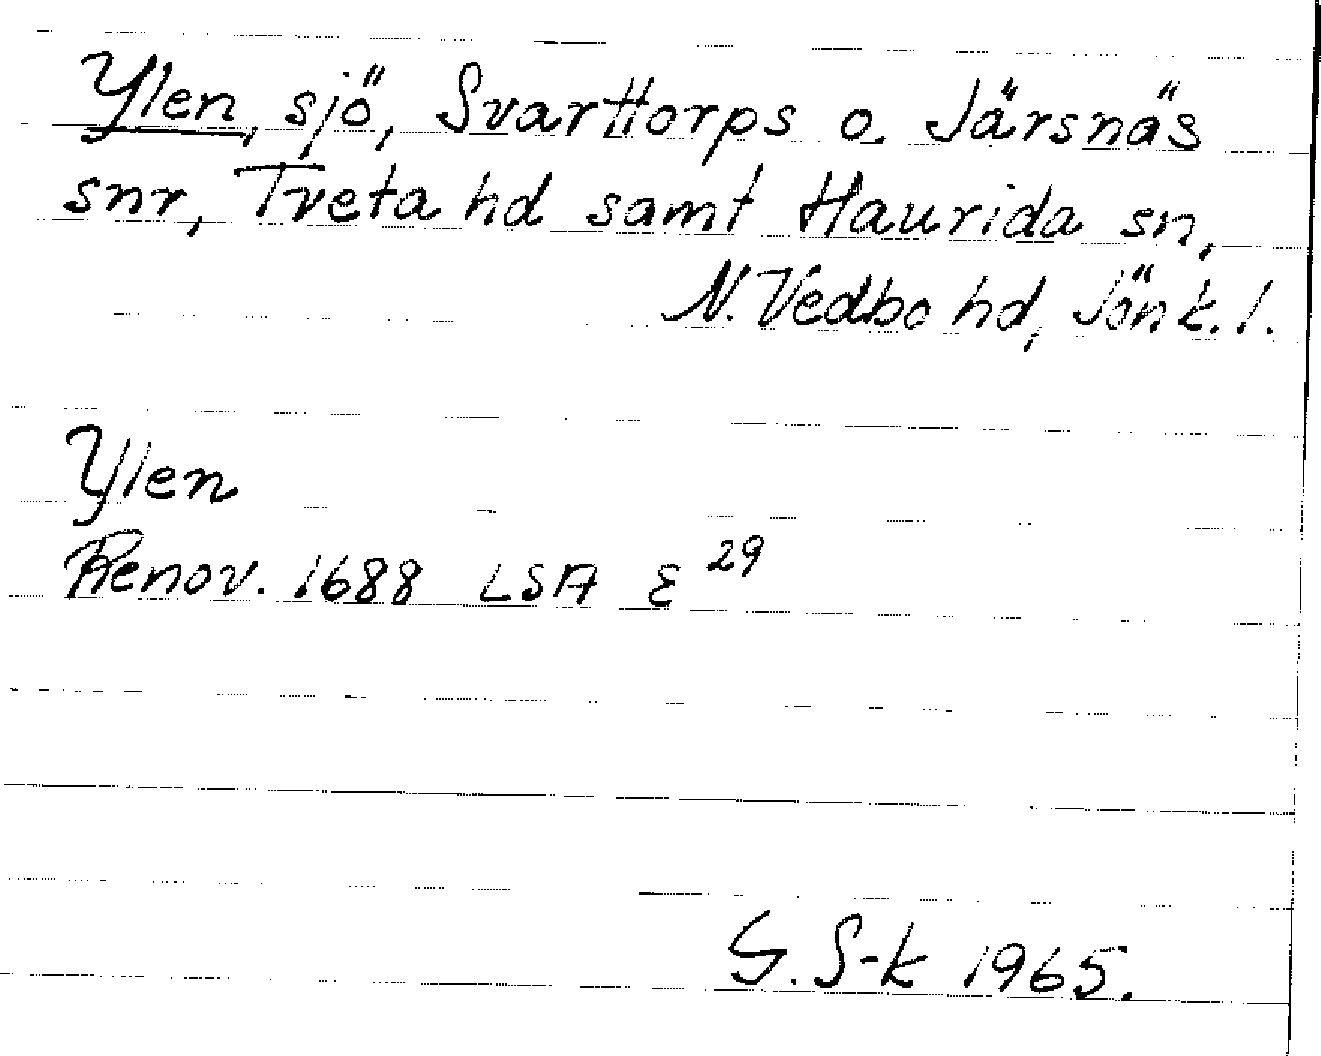 Ylen, sjö, Svarttorps o. Järsnäs
snr, Tveta hd samt Haurida sn,
N. Vedbo hd, Jönk. l.
Ylen
Renov. 1688 LSA E 29
G. S-k 1965.